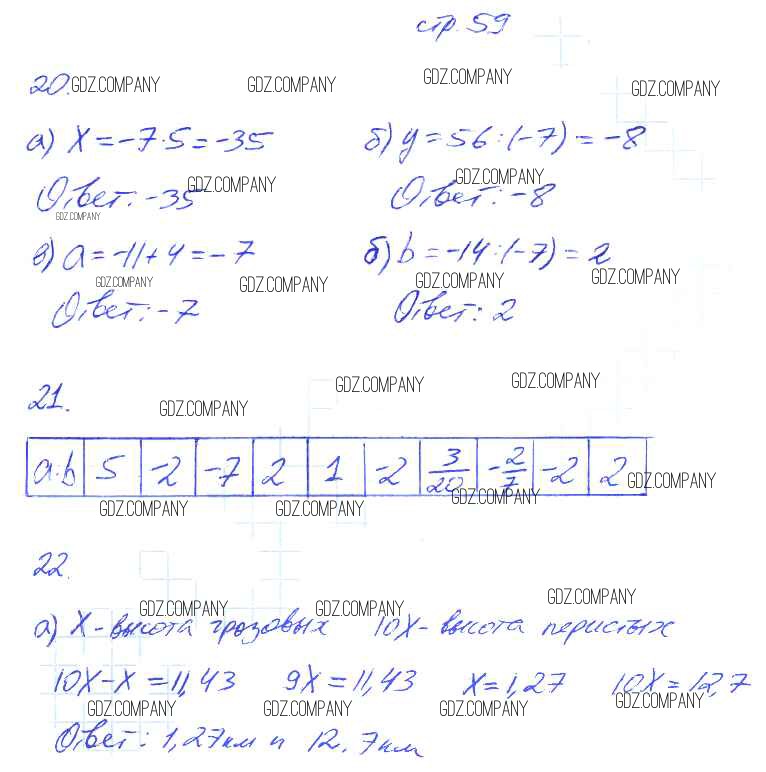 стр. 59
20. GDZ.COMPANY GDZ.COMPANY GDZ.COMPANY GDZ.COMPANY
а) x = -7·5 = -35 б) y = 56 : (-7) = -8
Ответ: -35 GDZ.COMPANY Ответ: -8 GDZ.COMPANY
GDZ.COMPANY
в) a = -11 + 4 = -7 б) b = -14 : (-7) = 2
GDZ.COMPANY GDZ.COMPANY GDZ.COMPANY GDZ.COMPANY
Ответ: -7 Ответ: 2
GDZ.COMPANY GDZ.COMPANY
21. GDZ.COMPANY
a:b 5 -2 -7 2 1 -2 3/20 -2/7 -2 2 GDZ.COMPANY
GDZ.COMPANY GDZ.COMPANY GDZ.COMPANY
22.
GDZ.COMPANY GDZ.COMPANY GDZ.COMPANY
а) x - высота грозовых 10x - высота перистых
10x - x = 11,43 9x = 11,43 x = 1,27 10x = 12,7
GDZ.COMPANY GDZ.COMPANY GDZ.COMPANY GDZ.COMPANY
Ответ: 1,27 км и 12,7 км